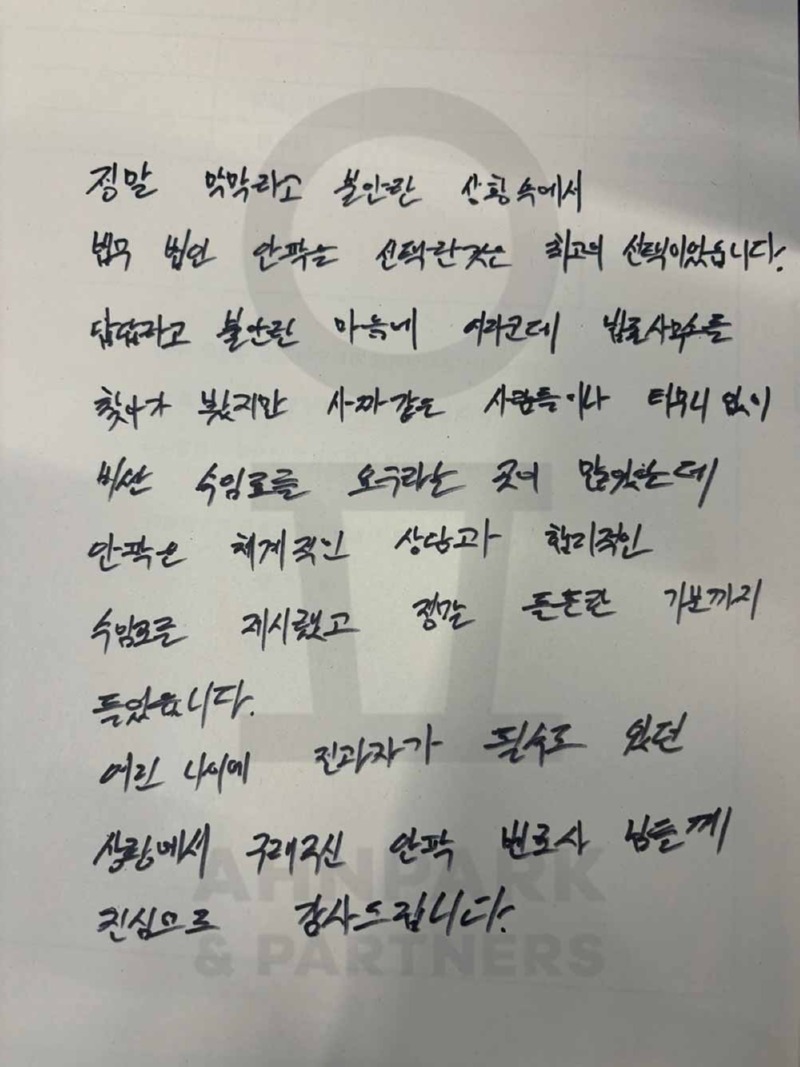 정말 막막하고 불안한 상황 속에서
법무 법인 안팍을 선택한것은 최고의 선택이었습니다!
답답하고 불안한 마음에 여러군데 법률사무소를
찾아가 봤지만 사짜같은 사람들이나 터무니 없이
비싼 수임료를 요구하는 곳이 많았는데
안팍은 체계적인 상담과 합리적인
수임료를 제시했고 정말 든든한 기분까지
들었습니다.
어린 나이에 전과자가 될수도 있던
상황에서 구해주신 안팍 변호사 님들께
진심으로 감사드립니다!
AHNPARK
& PARTNERS